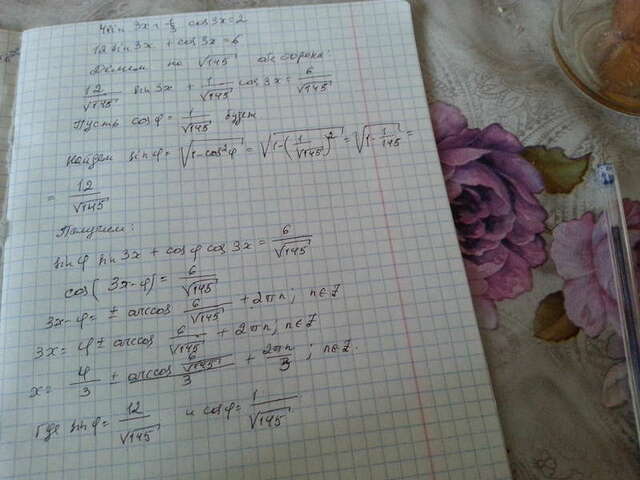 4sin 3x + 1/3 cos3x = 2
12 sin 3x + cos3x = 6
Делим на √145 обе стороны:
12/√145 sin 3x + 1/√145 cos 3x = 6/√145
Пусть cosφ = 1/√145 будет
Найдем sinφ = √(1-cos²φ) = √(1-(1/√145)²) = √(1-1/145) =
= 12/√145
Получим:
sinφ sin 3x + cosφ cos 3x = 6/√145
cos(3x-φ) = 6/√145
3x-φ = ± arccos 6/√145 + 2πn; n∈Z
3x = φ ± arccos 6/√145 + 2πn, n∈Z
x = φ/3 ± arccos 6/√145 / 3 + 2πn/3; n∈Z.
Где sinφ = 12/√145 и cosφ = 1/√145.